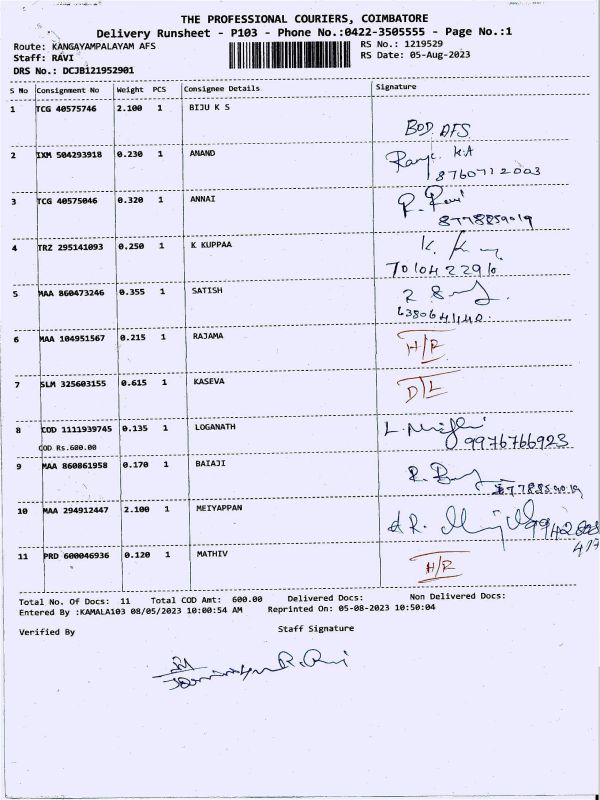 THE PROFESSIONAL COURIERS, COIMBATORE
Delivery Runsheet - P103 - Phone No.:0422-3505555 - Page No.:1
Route: KANGAYAMPALAYAM AFS RS No.: 1219529
Staff: RAVI RS Date: 05-Aug-2023
DRS No.: DCJB121952901
S No Consignment No Weight PCS Consignee Details Signature
1 TCG 40575746 2.100 1 BIJU K S
BOD AFS
2 IXM 504293918 0.230 1 ANAND K.A
8760712003
3 TCG 40575046 0.320 1 ANNAI R. Ravi
8778859019
4 TRZ 295141093 0.250 1 K KUPPAA K.
7010422910
5 MAA 860473246 0.355 1 SATISH
6 MAA 104951567 0.215 1 RAJAMA H/R
7 SLM 325603155 0.615 1 KASEVA D/L
8 COD 1111939745 0.135 1 LOGANATH L.
9976766923
COD Rs.600.00
9 MAA 860861958 0.170 1 BAIAJI R.
8778859019
10 MAA 294912447 2.100 1 MEIYAPPAN AR.
11 PRD 600046936 0.120 1 MATHIV H/R
Total No. Of Docs: 11 Total COD Amt: 600.00 Delivered Docs: Non Delivered Docs:
Entered By :KAMALA103 08/05/2023 10:00:54 AM Reprinted On: 05-08-2023 10:50:04
Verified By Staff Signature